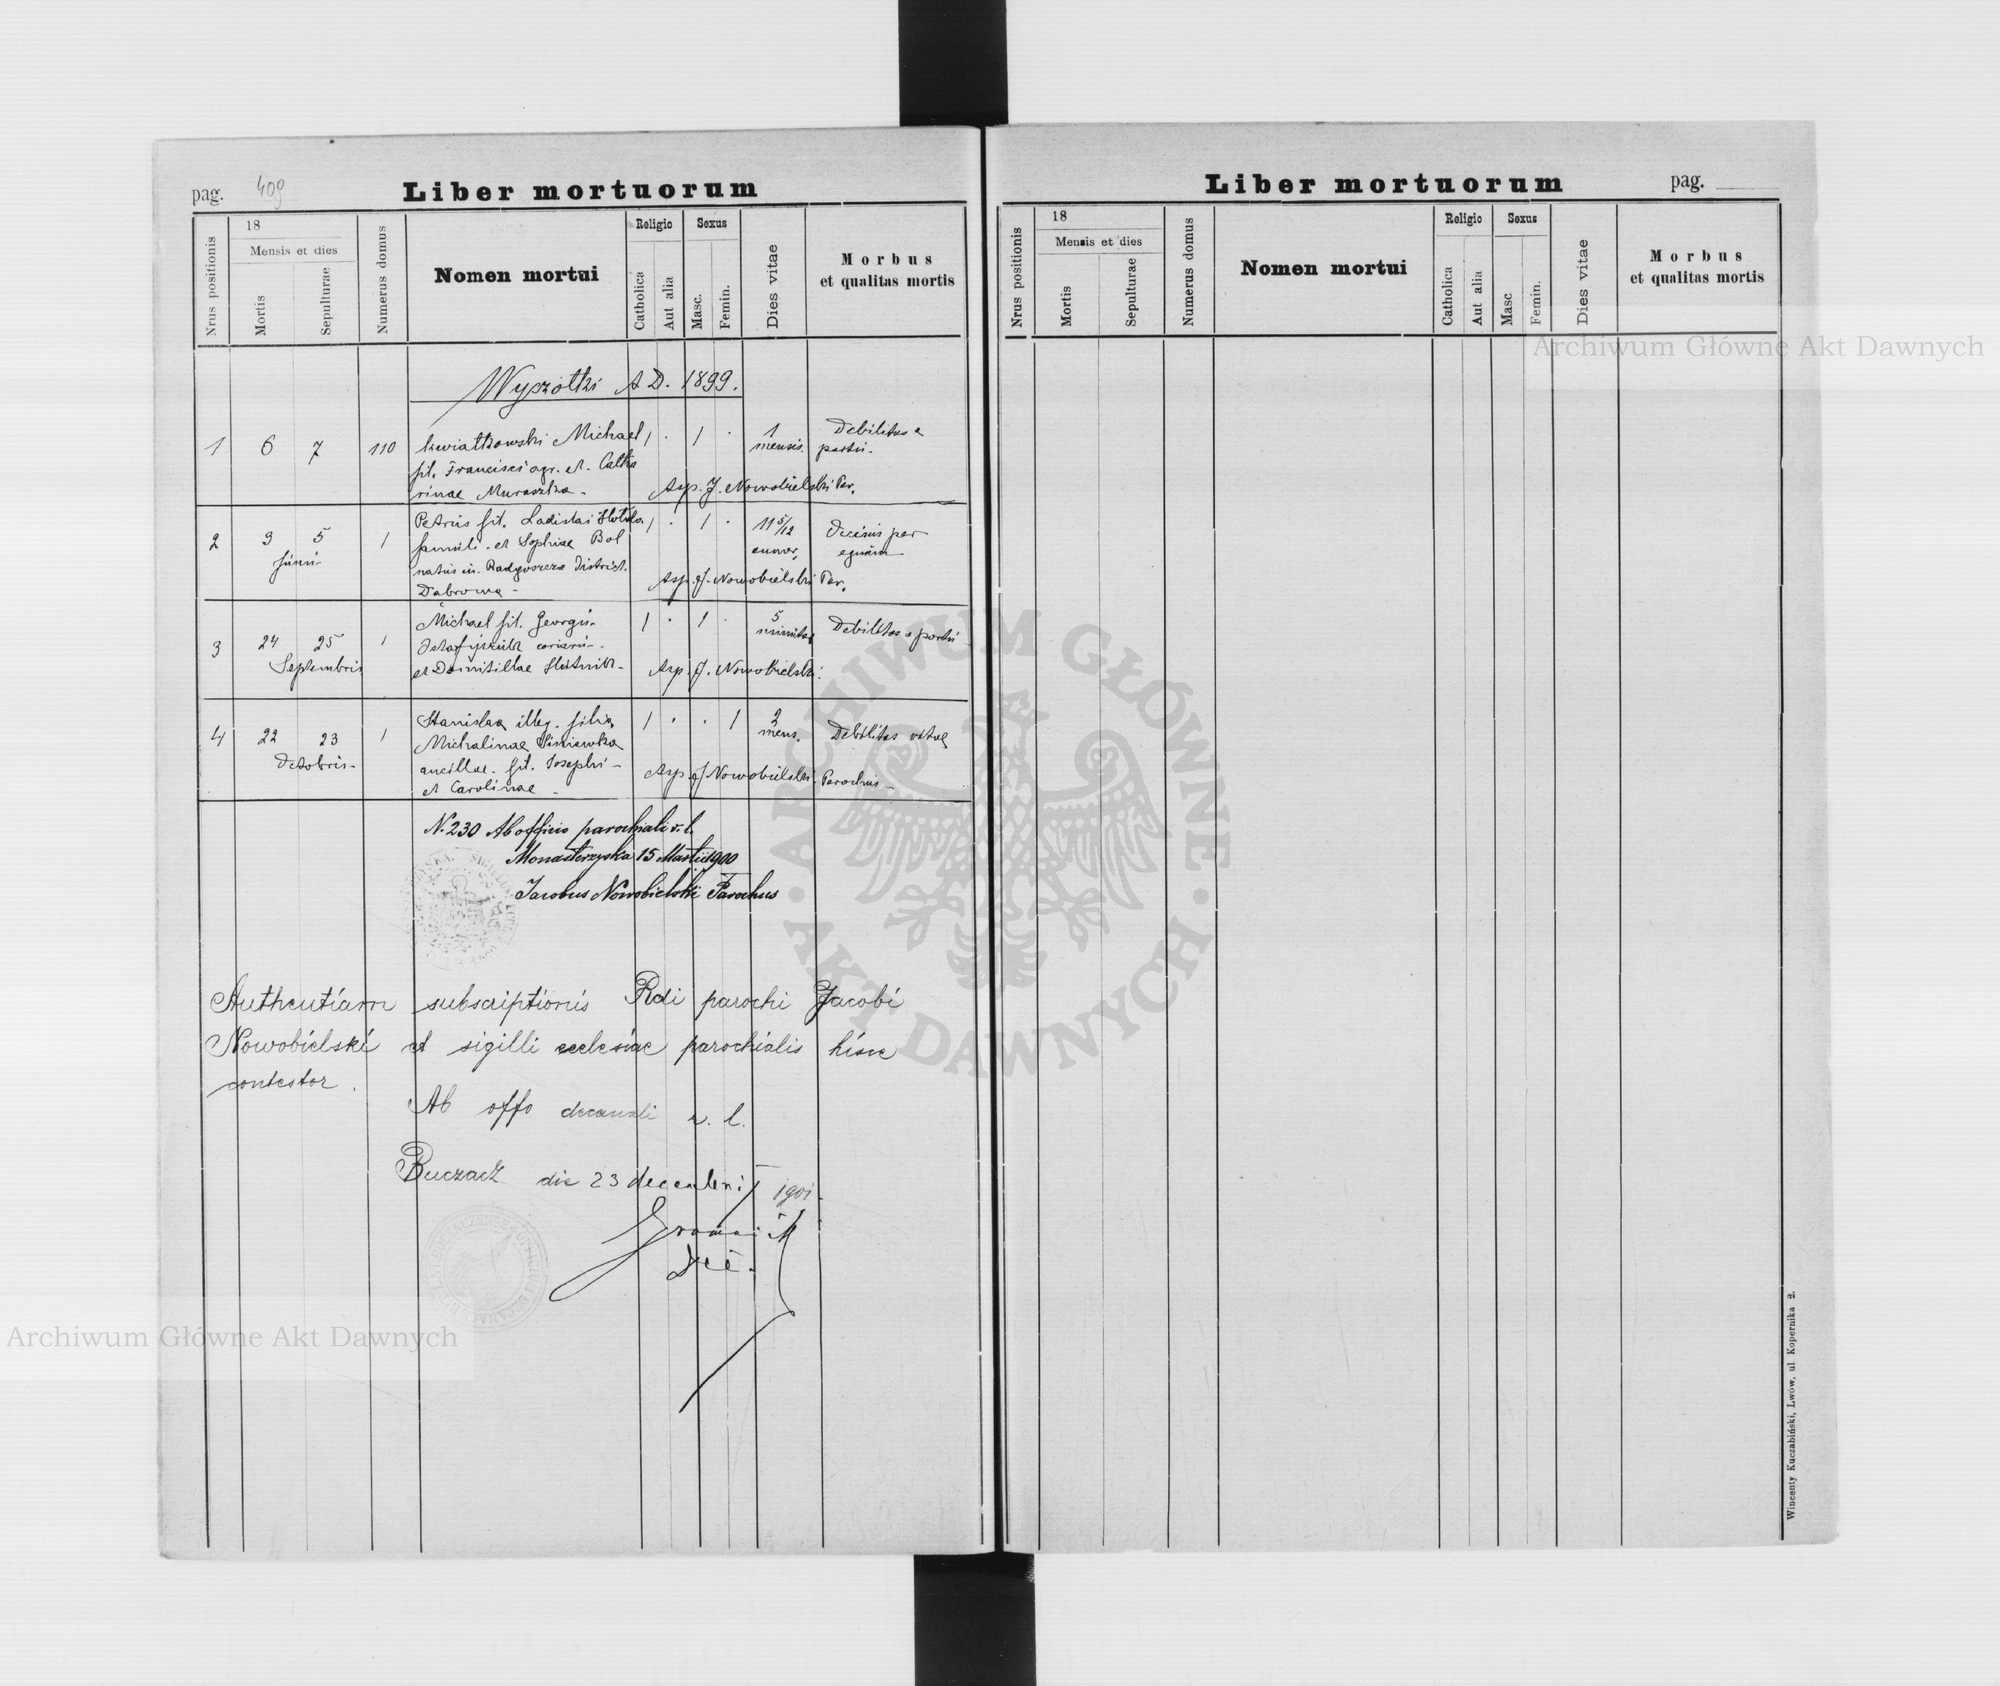 pag. 409
Liber mortuorum
Nrus positionis
18
Mensis et dies
Mortis
Sepulturae
Numerus domus
Nomen mortui
Religio
Catholica
Aut alia
Sexus
Masc.
Femin.
Dies vitae
Morbus
et qualitas mortis
Wyczółki A D. 1899.
1 6 7 110 Kwiatkowski Michael 1 . 1 . 1 mensis. Debilitas a partu.
fil. Francisci agr. et. Catha
rinae Muraszka -
Asp. J. Nowobielski Par.
2 3 5 Junii 1 Petrus fil. Ladislai 1 . 1 . 11 5/12 Occisus per equum
famuli - et Sophiae Bol
natus in Radgoszcze District.
Dabrowa -
Asp. J. Nowobielski Par.
3 24 25 Septembris 1 Michael fil. Georgii 1 . 1 . 5 minutas Debilitas a partu
et Domitillae Hutnik -
Asp. J. Nowobielski.
4 22 23 Octobris - 1 Stanislaa illeg. filia 1 . . 1 2 mens. Debilitas vitae
Michalinae
ancillae. fil. Josephi -
et Carolinae -
Asp. J. Nowobielski. Parochus -
N. 230 Ab officio parochiali r. l.
Monasterzyska 15 Martii 1900
Jacobus Nowobielski Parochus
Authentiam subscriptionis Rdi parochi Jacobi
Nowobielski et sigilli ecclesiae parochialis hisce
contestor.
Ab offo decanali r. l.
Buczacz die 23 decembris 1901
Liber mortuorum
pag.
Nrus positionis
18
Mensis et dies
Mortis
Sepulturae
Numerus domus
Nomen mortui
Religio
Catholica
Aut alia
Sexus
Masc
Femin.
Dies vitae
Morbus
et qualitas mortis
Wincenty Kuczabiński, Lwów, ul. Kopernika 2.
Archiwum Główne Akt Dawnych
Archiwum Główne Akt Dawnych
ARCHIWUM GŁÓWNE · AKT DAWNYCH ·